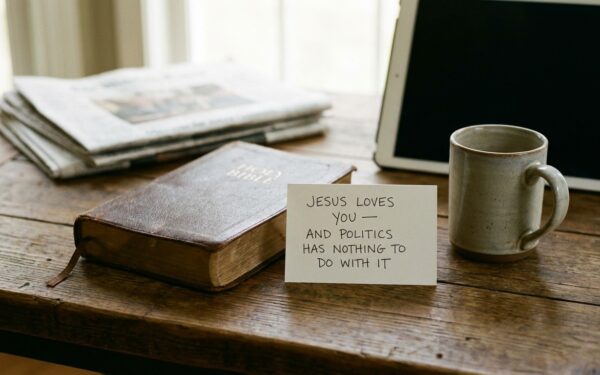 HOLY
BIBLE
JESUS LOVES
YOU —
AND POLITICS
HAS NOTHING TO
DO WITH IT